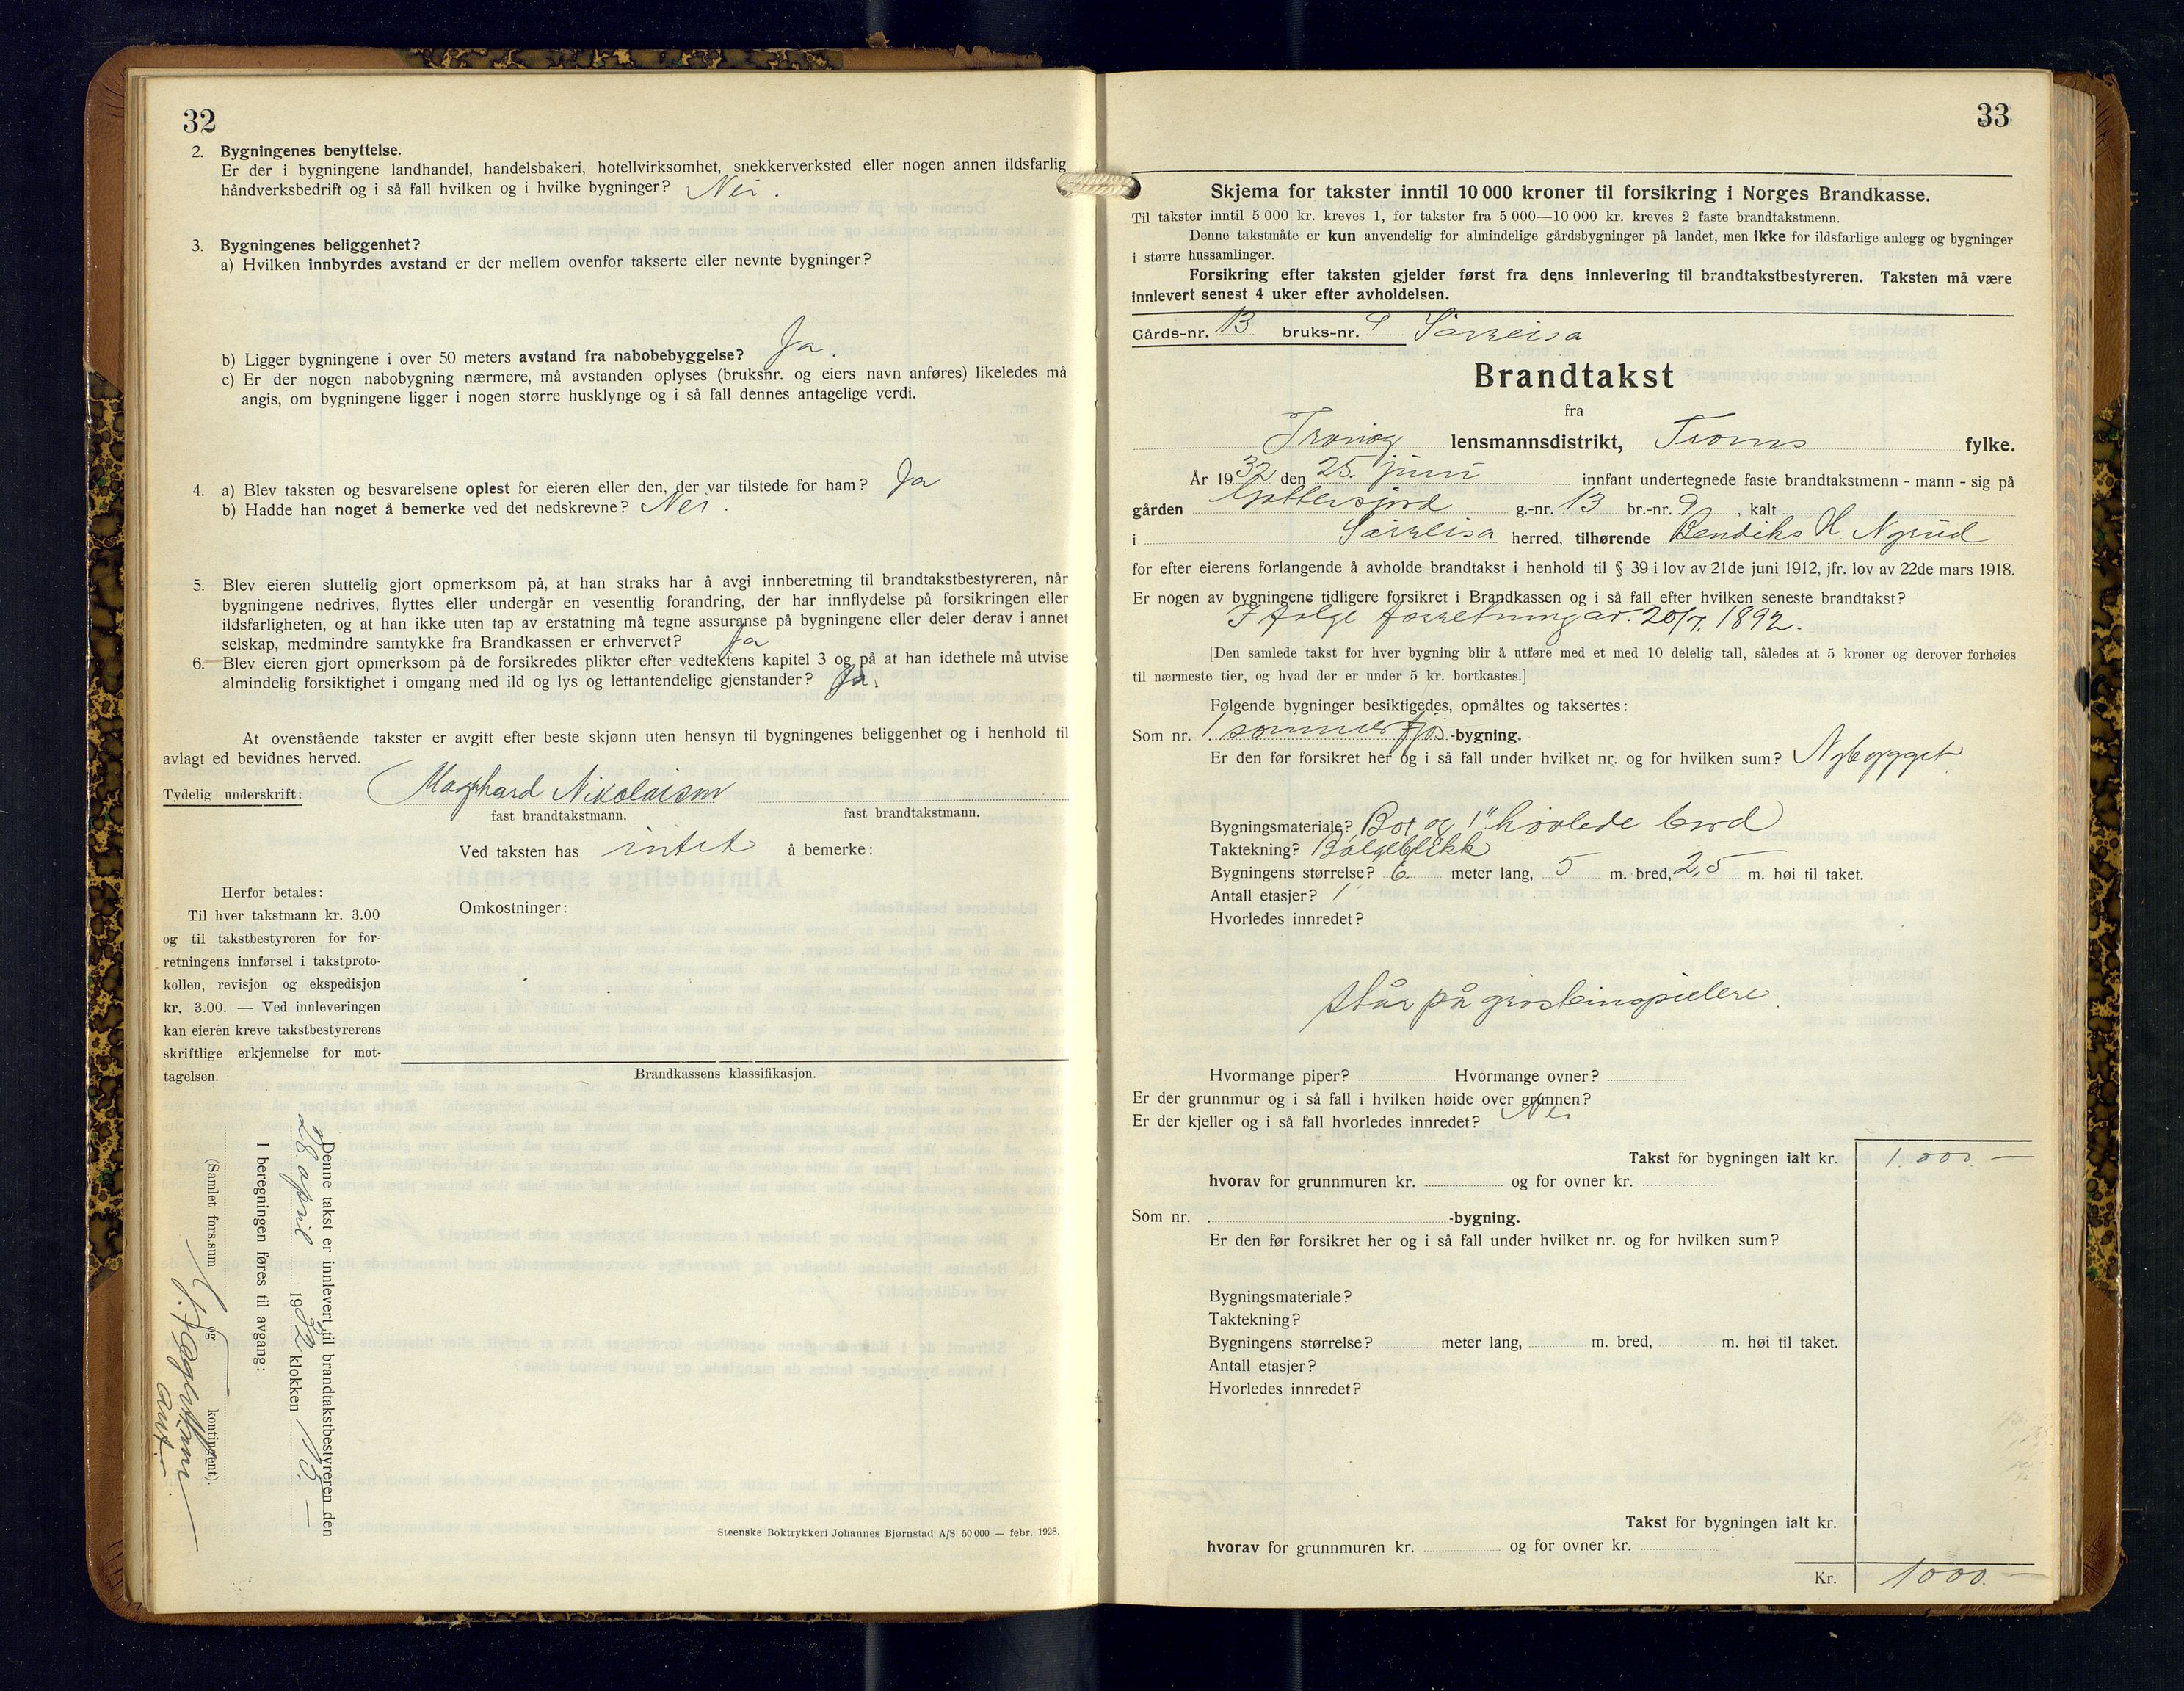 32
2. Bygningenes benyttelse.
Er der i bygningene landhandel, handelsbakeri, hotellvirksomhet, snekkerverksted eller nogen annen ildsfarlig
håndverksbedrift og i så fall hvilken og i hvilke bygninger? Nei.
3. Bygningenes beliggenhet?
a) Hvilken innbyrdes avstand er der mellem ovenfor takserte eller nevnte bygninger?
b) Ligger bygningene i over 50 meters avstand fra nabobebyggelse? Ja.
c) Er der nogen nabobygning nærmere, må avstanden oplyses (bruksnr. og eiers navn anføres) likeledes må
angis, om bygningene ligger i nogen større husklynge og i så fall dennes antagelige verdi.
4. a) Blev taksten og besvarelsene oplest for eieren eller den, der var tilstede for ham? Ja
b) Hadde han noget å bemerke ved det nedskrevne? Nei.
5. Blev eieren sluttelig gjort opmerksom på, at han straks har å avgi innberetning til brandtakstbestyreren, når
bygningene nedrives, flyttes eller undergår en vesentlig forandring, der har innflydelse på forsikringen eller
ildsfarligheten, og at han ikke uten tap av erstatning må tegne assuranse på bygningene eller deler derav i annet
selskap, medmindre samtykke fra Brandkassen er erhvervet? Ja
6. Blev eieren gjort opmerksom på de forsikredes plikter efter vedtektens kapitel 3 og på at han idethele må utvise
almindelig forsiktighet i omgang med ild og lys og lettantendelige gjenstander? Ja.
At ovenstående takster er avgitt efter beste skjønn uten hensyn til bygningenes beliggenhet og i henhold til
avlagt ed bevidnes herved.
Tydelig underskrift: Nikolaisen
fast brandtakstmann. fast brandtakstmann.
Ved taksten has intet å bemerke:
Herfor betales:
Til hver takstmann kr. 3.00
og til takstbestyreren for for-
retningens innførsel i takstproto-
kollen, revisjon og ekspedisjon
kr. 3.00. — Ved innleveringen
kan eieren kreve takstbestyrerens
skriftlige erkjennelse for mot-
tagelsen.
Omkostninger:
Brandkassens klassifikasjon.
Denne takst er innlevert til brandtakstbestyreren den
28. april 1932 klokken
I beregningen føres til avgang:
(Samlet fors.sum og kontingent).
Steenske Boktrykkeri Johannes Bjørnstad A/S 50 000 — febr. 1928.
33
Skjema for takster inntil 10 000 kroner til forsikring i Norges Brandkasse.
Til takster inntil 5 000 kr. kreves 1, for takster fra 5 000—10 000 kr. kreves 2 faste brandtakstmenn.
Denne takstmåte er kun anvendelig for almindelige gårdsbygninger på landet, men ikke for ildsfarlige anlegg og bygninger
i større hussamlinger.
Forsikring efter taksten gjelder først fra dens innlevering til brandtakstbestyreren. Taksten må være
innlevert senest 4 uker efter avholdelsen.
Gårds-nr. 13 bruks-nr. 9 Sørreisa
Brandtakst
fra
Tranøy lensmannsdistrikt, Troms fylke.
År 1932 den 25. juni innfant undertegnede faste brandtakstmenn - mann - sig på
gården Gottesjord g.-nr. 13 br.-nr. 9, kalt
i Sørreisa herred, tilhørende Bendiks H. Nyrud
for efter eierens forlangende å avholde brandtakst i henhold til § 39 i lov av 21de juni 1912, jfr. lov av 22de mars 1918.
Er nogen av bygningene tidligere forsikret i Brandkassen og i så fall efter hvilken seneste brandtakst?
I følge forretning av. 20/7. 1892.
[Den samlede takst for hver bygning blir å utføre med et med 10 delelig tall, således at 5 kroner og derover forhøies
til nærmeste tier, og hvad der er under 5 kr. bortkastes.]
Følgende bygninger besiktigedes, opmåltes og taksertes:
Som nr. 1 sommerfjøs -bygning.
Er den før forsikret her og i så fall under hvilket nr. og for hvilken sum? Nybygget
Bygningsmateriale? og 1" høvlede bord
Taktekning? Bølgeblikk
Bygningens størrelse? 6 meter lang, 5 m. bred, 2,5 m. høi til taket.
Antall etasjer? 1
Hvorledes innredet?
står på gråsteinspielere.
Hvormange piper? Hvormange ovner?
Er der grunnmur og i så fall i hvilken høide over grunnen?
Er der kjeller og i så fall hvorledes innredet? Nei
Takst for bygningen ialt kr. 1.000 —
hvorav for grunnmuren kr. og for ovner kr.
Som nr. -bygning.
Er den før forsikret her og i så fall under hvilket nr. og for hvilken sum?
Bygningsmateriale?
Taktekning?
Bygningens størrelse? meter lang, m. bred, m. høi til taket.
Antall etasjer?
Hvorledes innredet?
Takst for bygningen ialt kr.
hvorav for grunnmuren kr. og for ovner kr.
Kr. 1000. —